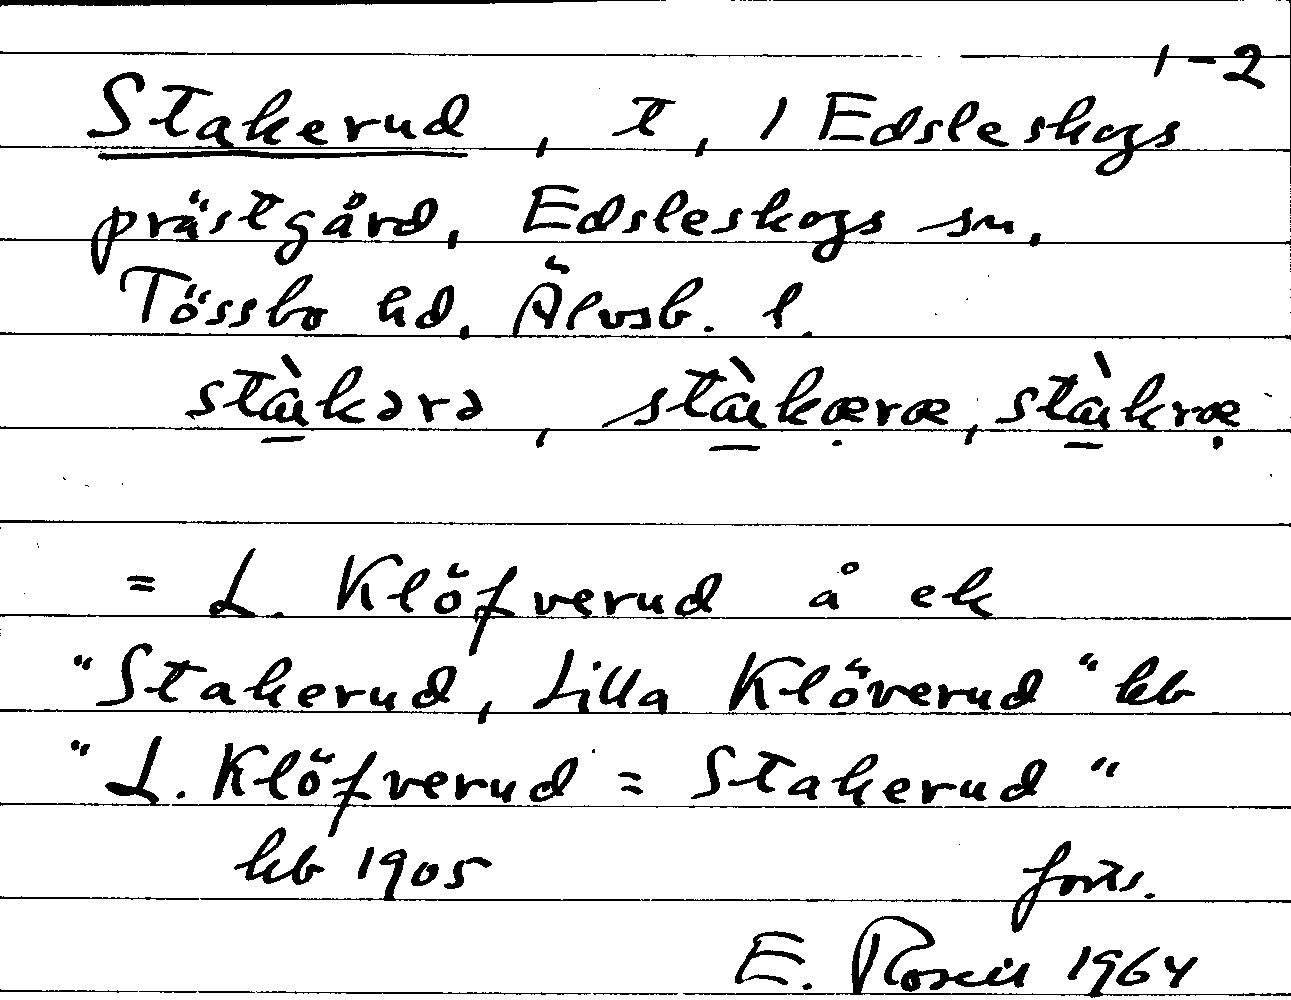 1-2
Stakerud, t, 1 Edsleskogs
prästgård, Edsleskogs sn.
Tössbo hd. Älvsb. l.
= L. Klöfverud å ek
"Stakerud, Lilla Klöverud" kb
"L. Klöfverud = Stakerud"
kb 1905
forts.
E. Rosell 1964